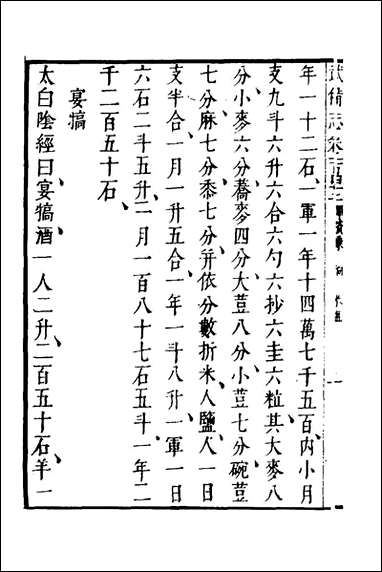 武備志卷一百四十二
年一十二石一軍一年十四萬七千五百内小月
支九斗六升六合六勺六抄六圭六粒其大麥八
分小麥六分蕎麥四分大荳八分小荳七分碗荳
七分麻七分黍七分并依分數折米人鹽人一日
支半合一月一升五合一年一斗八升一軍一日
六石二斗五升一月一百八十七石五斗一年二
千二百五十石
宴犒
太白陰經曰宴犒酒一人二升二百五十石羊一